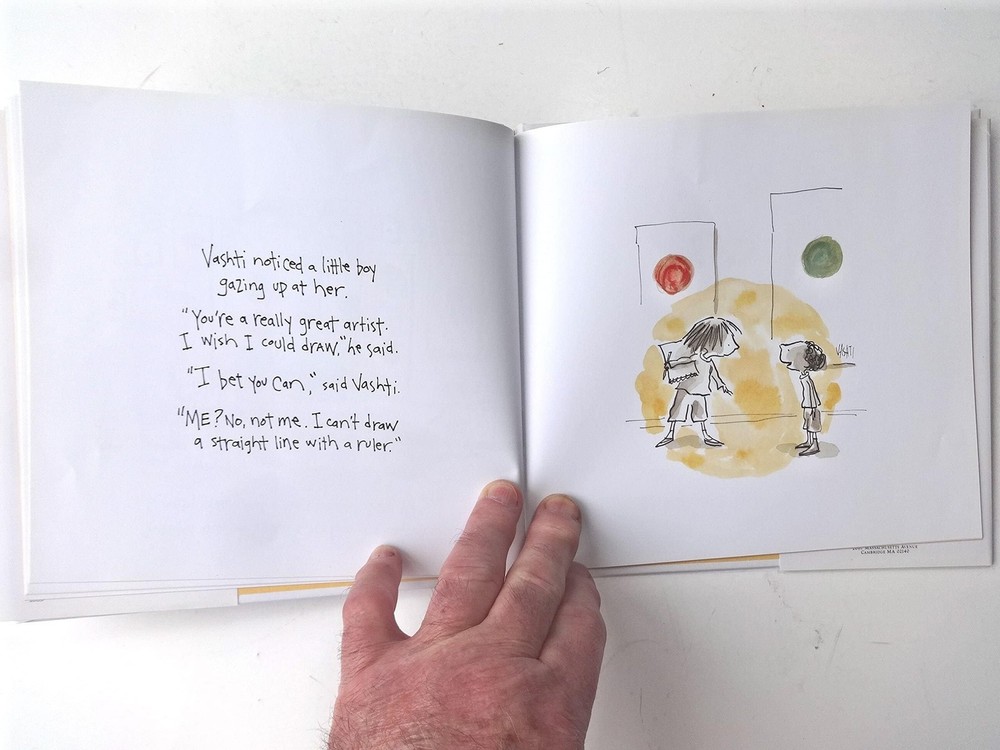 Vashti noticed a little boy
gazing up at her.
"You're a really great artist.
I wish I could draw," he said.
"I bet you can," said Vashti.
"ME? No, not me. I can't draw
a straight line with a ruler."
VASHTI
MASSACHUSETTS AVENUE
CAMBRIDGE MA 02140